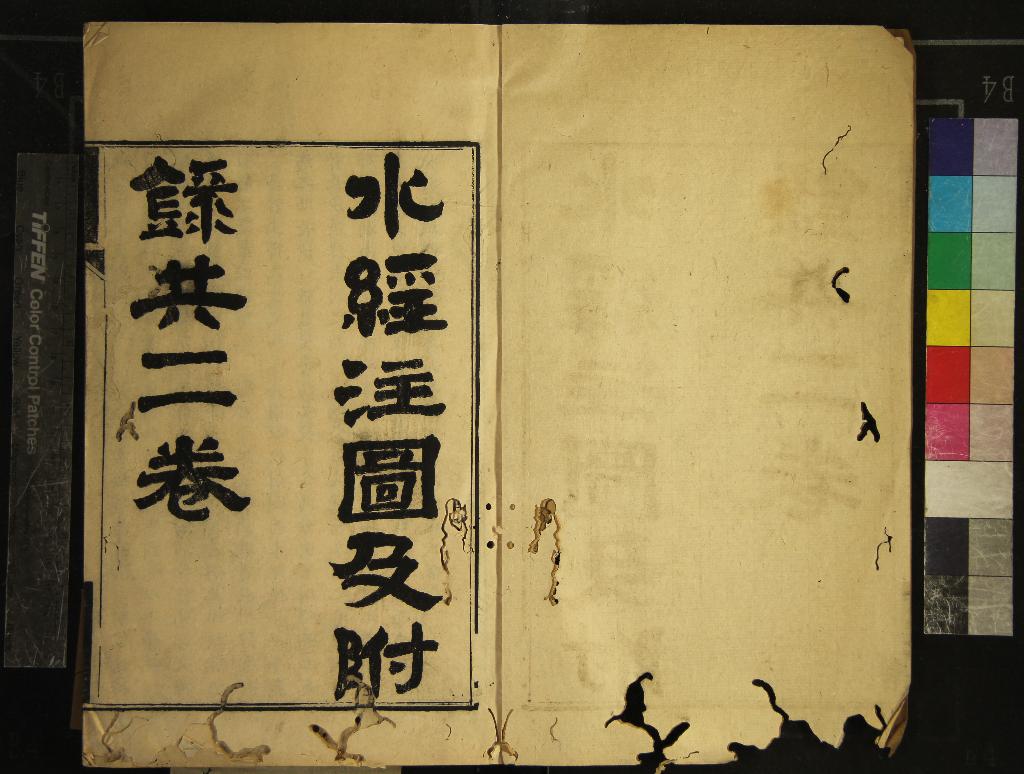 水經注圖及附
錄共二卷
TIFFEN Color Control Patches
B4